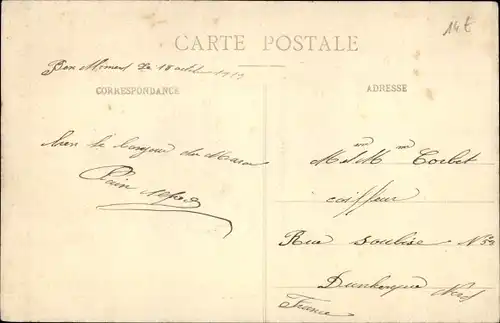 14 €
CARTE POSTALE
Ben Ahmed le 18 1919
CORRESPONDANCE
ADRESSE
bien le bonjour du Maroc
M et M Corbet
coiffeur
Rue Soubise N
Dunkerque Nord
France